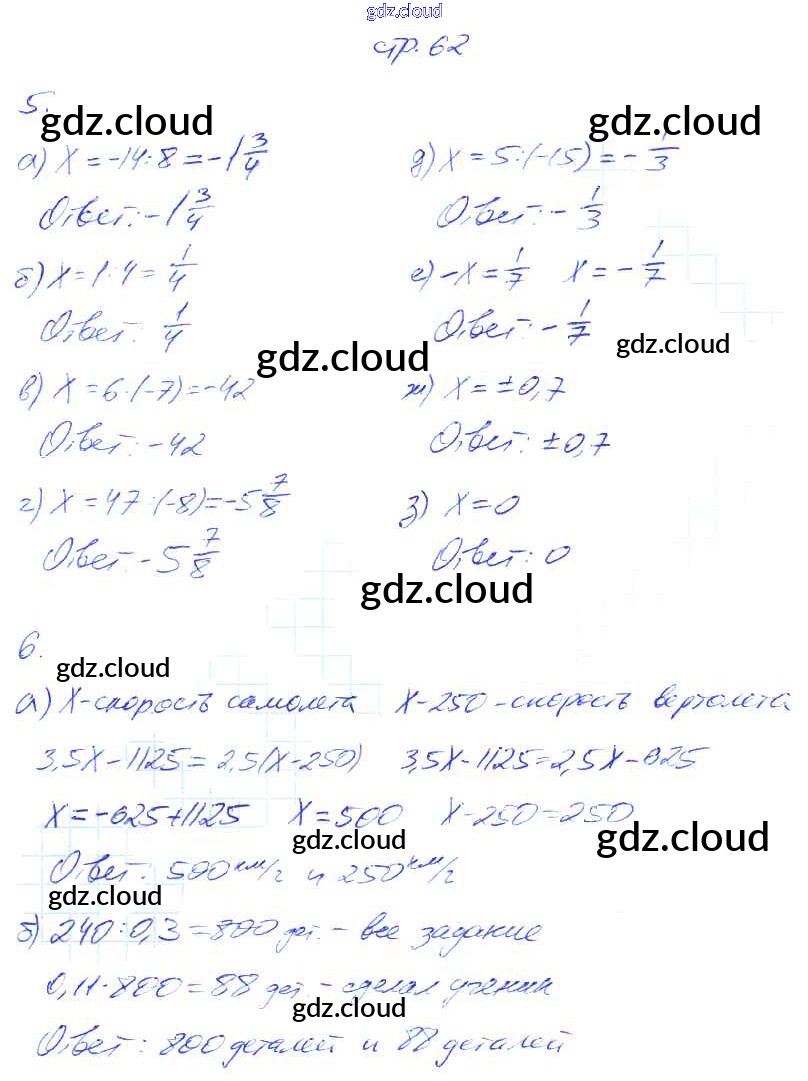 gdz.cloud
стр. 62
5.
gdz.cloud
gdz.cloud
а) X = -14:8 = -1 3/4
Ответ: -1 3/4
б) X = 1·4 = 1/4
Ответ: 1/4
gdz.cloud
в) X = 6·(-7) = -42
Ответ: -42
г) X = 47:(-8) = -5 7/8
Ответ: -5 7/8
д) X = 5:(-15) = -1/3
Ответ: -1/3
е) -X = 1/7 X = -1/7
Ответ: -1/7
gdz.cloud
ж) X = ±0,7
Ответ: ±0,7
з) X = 0
Ответ: 0
gdz.cloud
6.
gdz.cloud
а) X - скорость самолета X-250 - скорость вертолета
3,5X - 1125 = 2,5(X-250) 3,5X - 1125 = 2,5X - 625
X = -625 + 1125 X = 500 X - 250 = 250
gdz.cloud
gdz.cloud
Ответ: 500 км/г и 250 км/г
gdz.cloud
б) 240:0,3 = 800 дет. - все задание
0,11·800 = 88 дет. - сделал ученик
gdz.cloud
Ответ: 800 деталей и 88 деталей